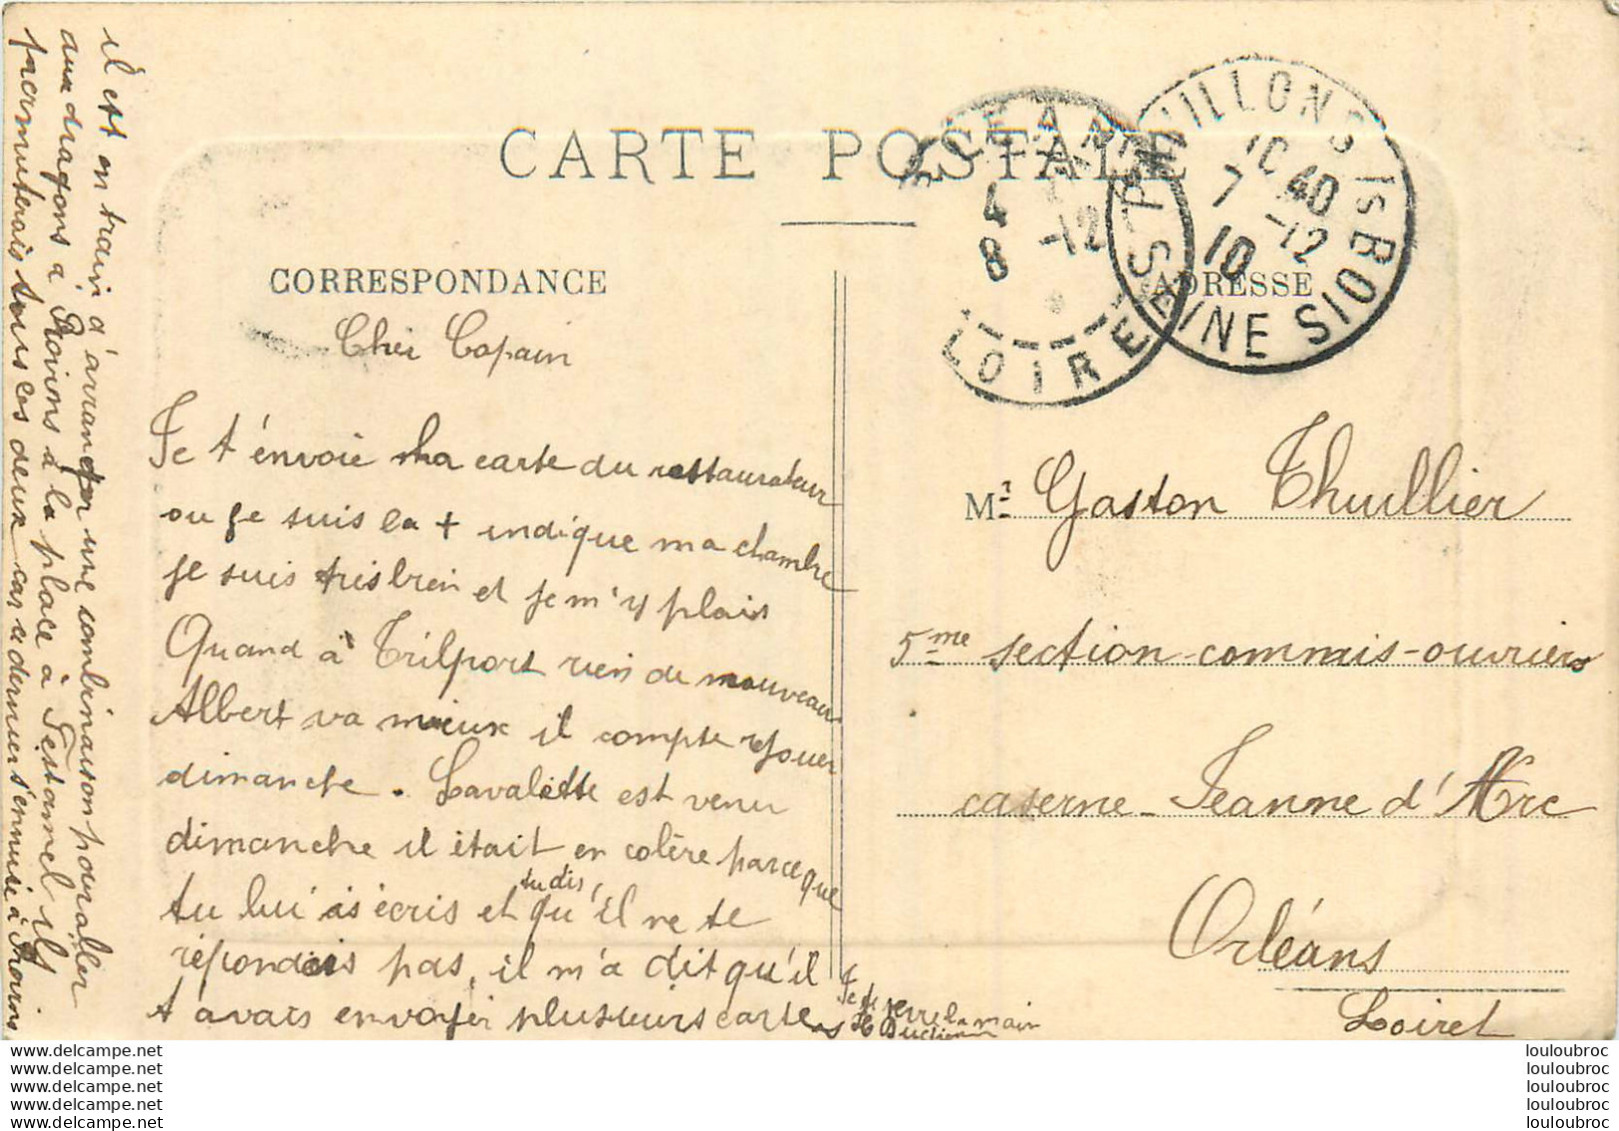 CARTE POSTALE
CORRESPONDANCE
ADRESSE
PAVILLONS Is BOIS
SEINE
10 40
7 -12
10
ORLEANS
4
8 -12
LOIRET
Cher Copain
Je t'énvoie ma carte du restaurateur
ou je suis la + indique ma chambre
je suis très bien et je m'y plais
Quand à Trilport rien de nouveau
Albert va mieux il compte rejouer
dimanche. Lavalette est venu
dimanche il était en colère parceque
tu lui as écris et tu dis, qu'il ne te
répondais pas, il m'a dit qu'il
t avais envoyér plusieurs cartes
Je te serre la main
il est en train d'arranger une combinaison pour aller
aux dragons à Provins à la place à Testamel ils
permuterais tous les deux car ce dernier s'ennuie à Provins
Mr Gaston Thuillier
5me section-commis-ouvriers
caserne-Jeanne d'Arc
Orléans
Loiret
louloubroc.delcampe.net
louloubroc.delcampe.net
louloubroc.delcampe.net
louloubroc.delcampe.net
louloubroc.delcampe.net
louloubroc
louloubroc
louloubroc
louloubroc
louloubroc